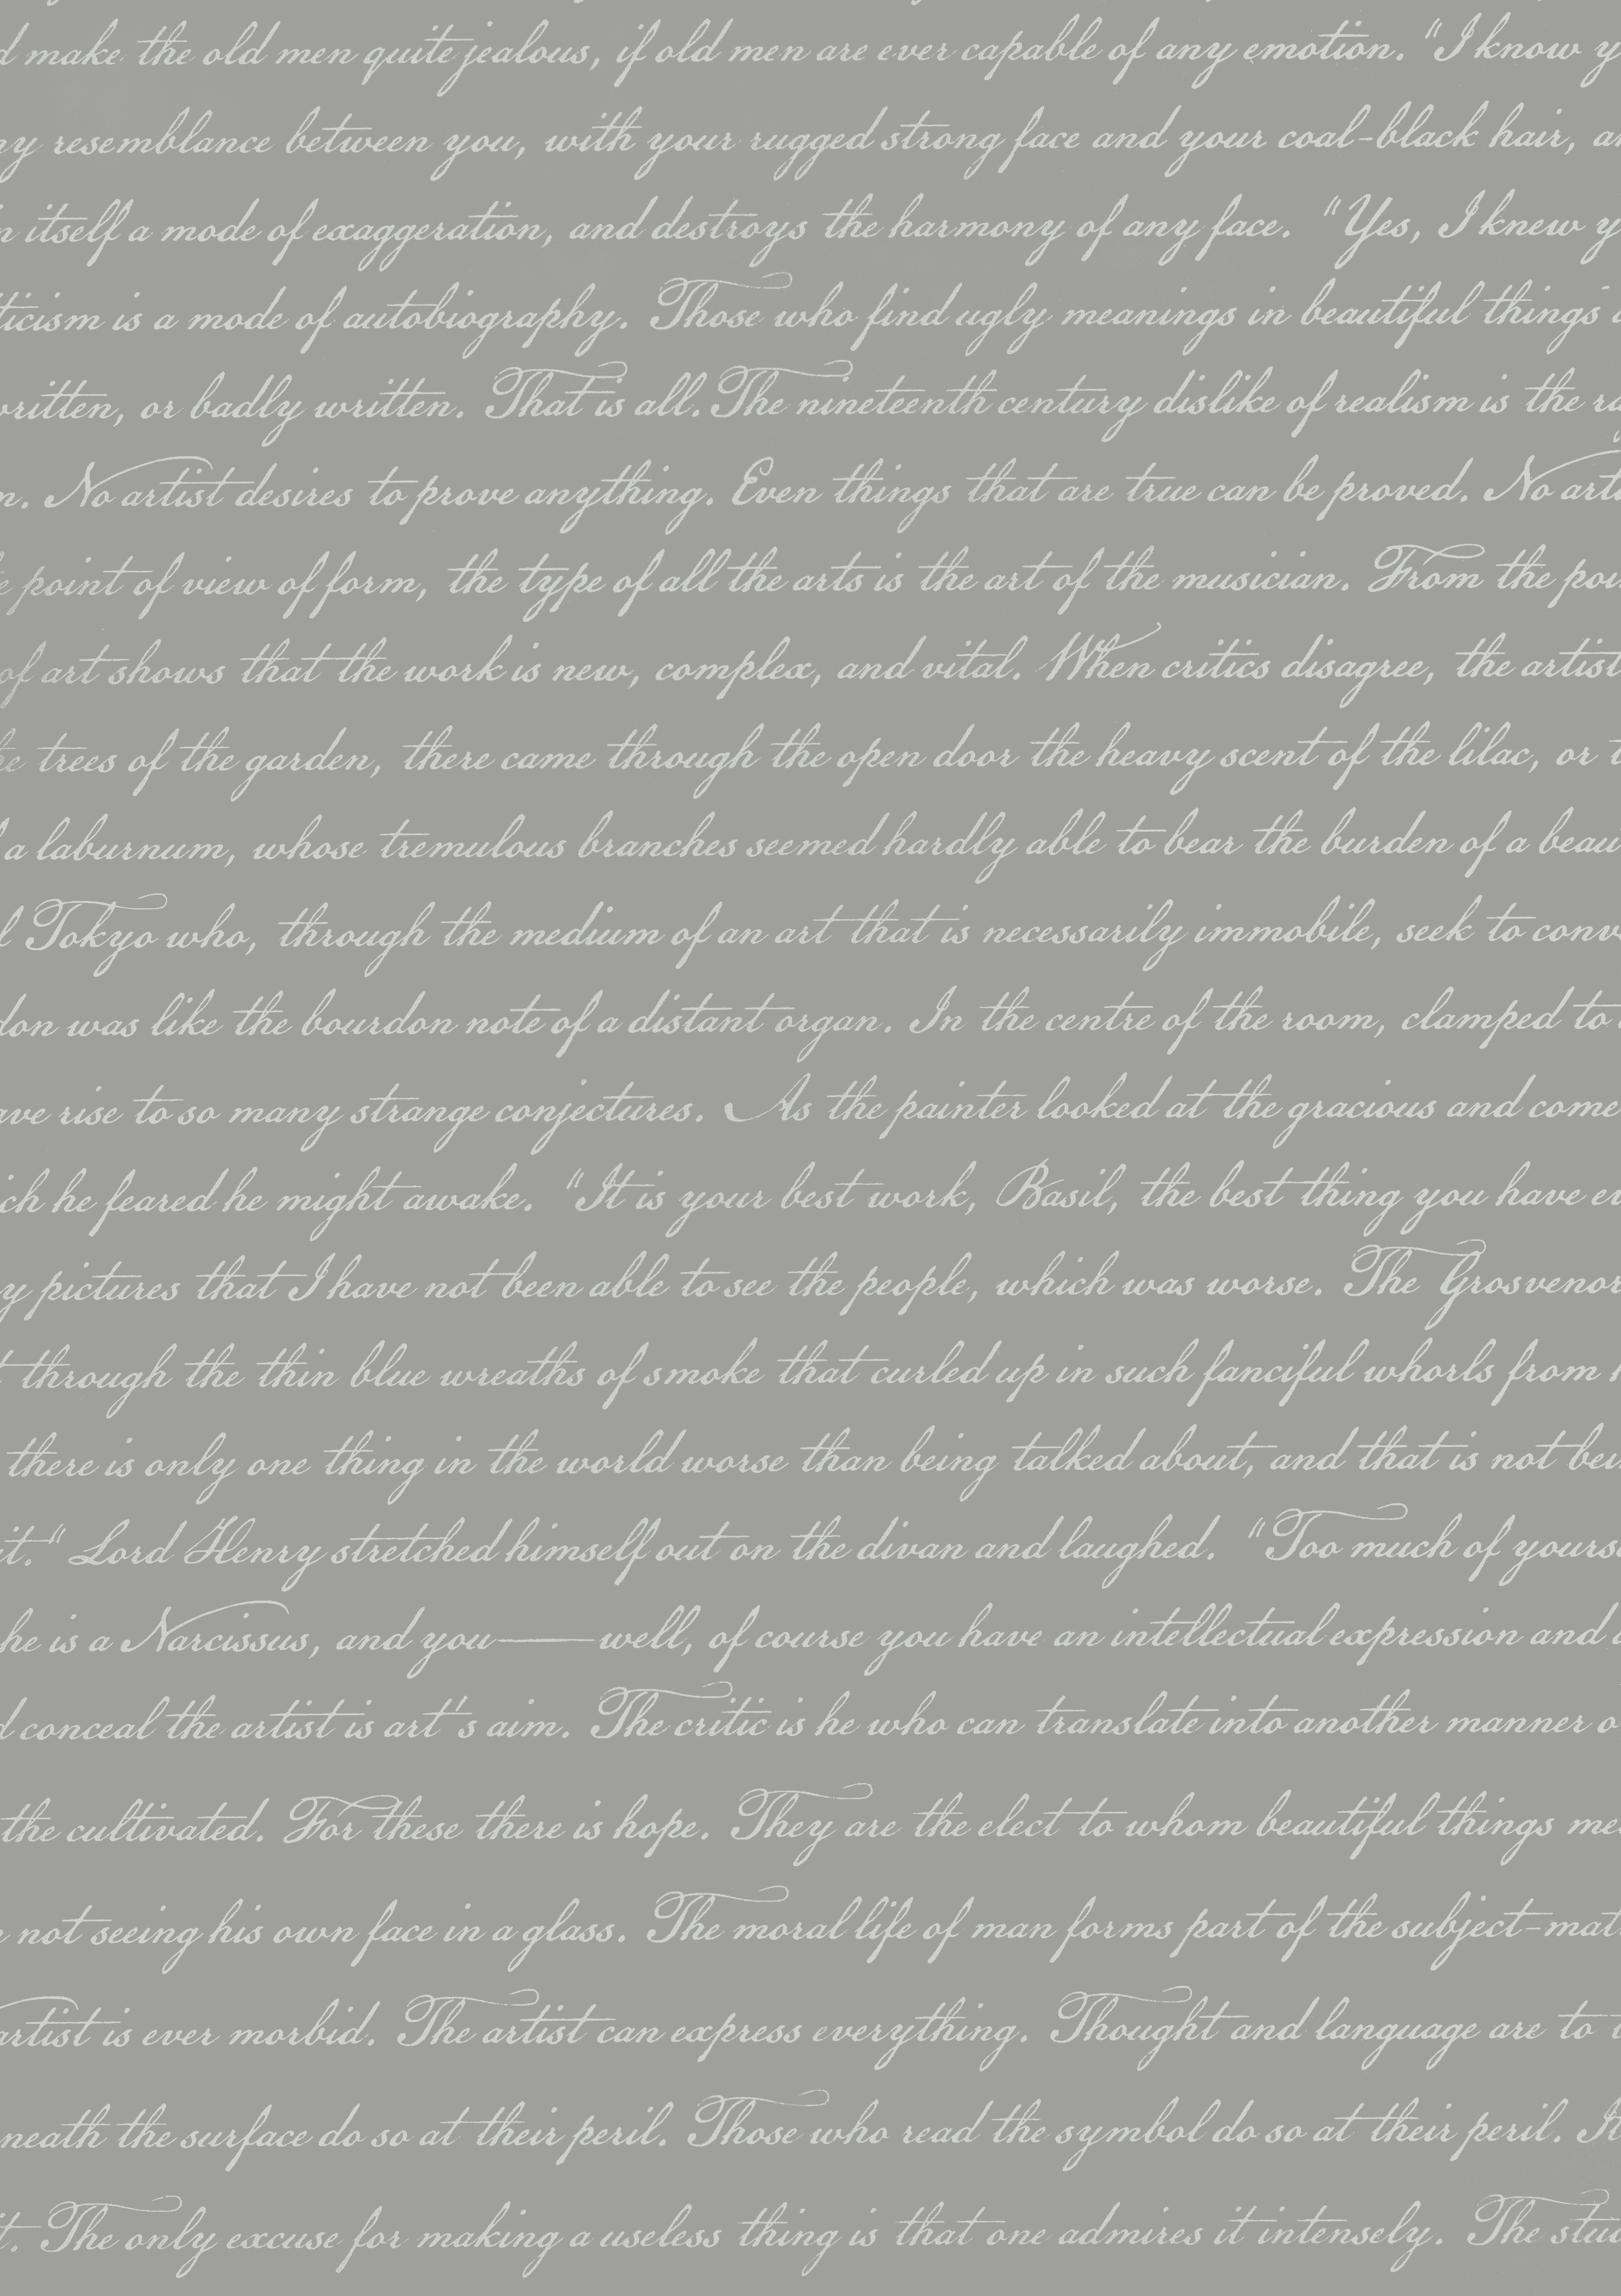 make the old men quite jealous, if old men are ever capable of any emotion. "I know
resemblance between you, with your rugged strong face and your coal-black hair,
itself a mode of exaggeration, and destroys the harmony of any face. "Yes, I knew
is a mode of autobiography. Those who find ugly meanings in beautiful things
or badly written. That is all. The nineteenth century dislike of realism is the
No artist desires to prove anything. Even things that are true can be proved. No
point of view of form, the type of all the arts is the art of the musician. From the
of art shows that the work is new, complex, and vital. When critics disagree, the artist
trees of the garden, there came through the open door the heavy scent of the lilac, or
a laburnum, whose tremulous branches seemed hardly able to bear the burden of a
Tokyo who, through the medium of an art that is necessarily immobile, seek to
was like the bourdon note of a distant organ. In the centre of the room, clamped to
rise to so many strange conjectures. As the painter looked at the gracious and
he feared he might awake. "It is your best work, Basil, the best thing you have
pictures that I have not been able to see the people, which was worse. The Grosvenor
through the thin blue wreaths of smoke that curled up in such fanciful whorls from
there is only one thing in the world worse than being talked about, and that is not
it." Lord Henry stretched himself out on the divan and laughed. "Too much of
he is a Narcissus, and you——well, of course you have an intellectual expression and
conceal the artist is art's aim. The critic is he who can translate into another manner
the cultivated. For these there is hope. They are the elect to whom beautiful things
not seeing his own face in a glass. The moral life of man forms part of the
artist is ever morbid. The artist can express everything. Thought and language are to
the surface do so at their peril. Those who read the symbol do so at their peril.
The only excuse for making a useless thing is that one admires it intensely. The